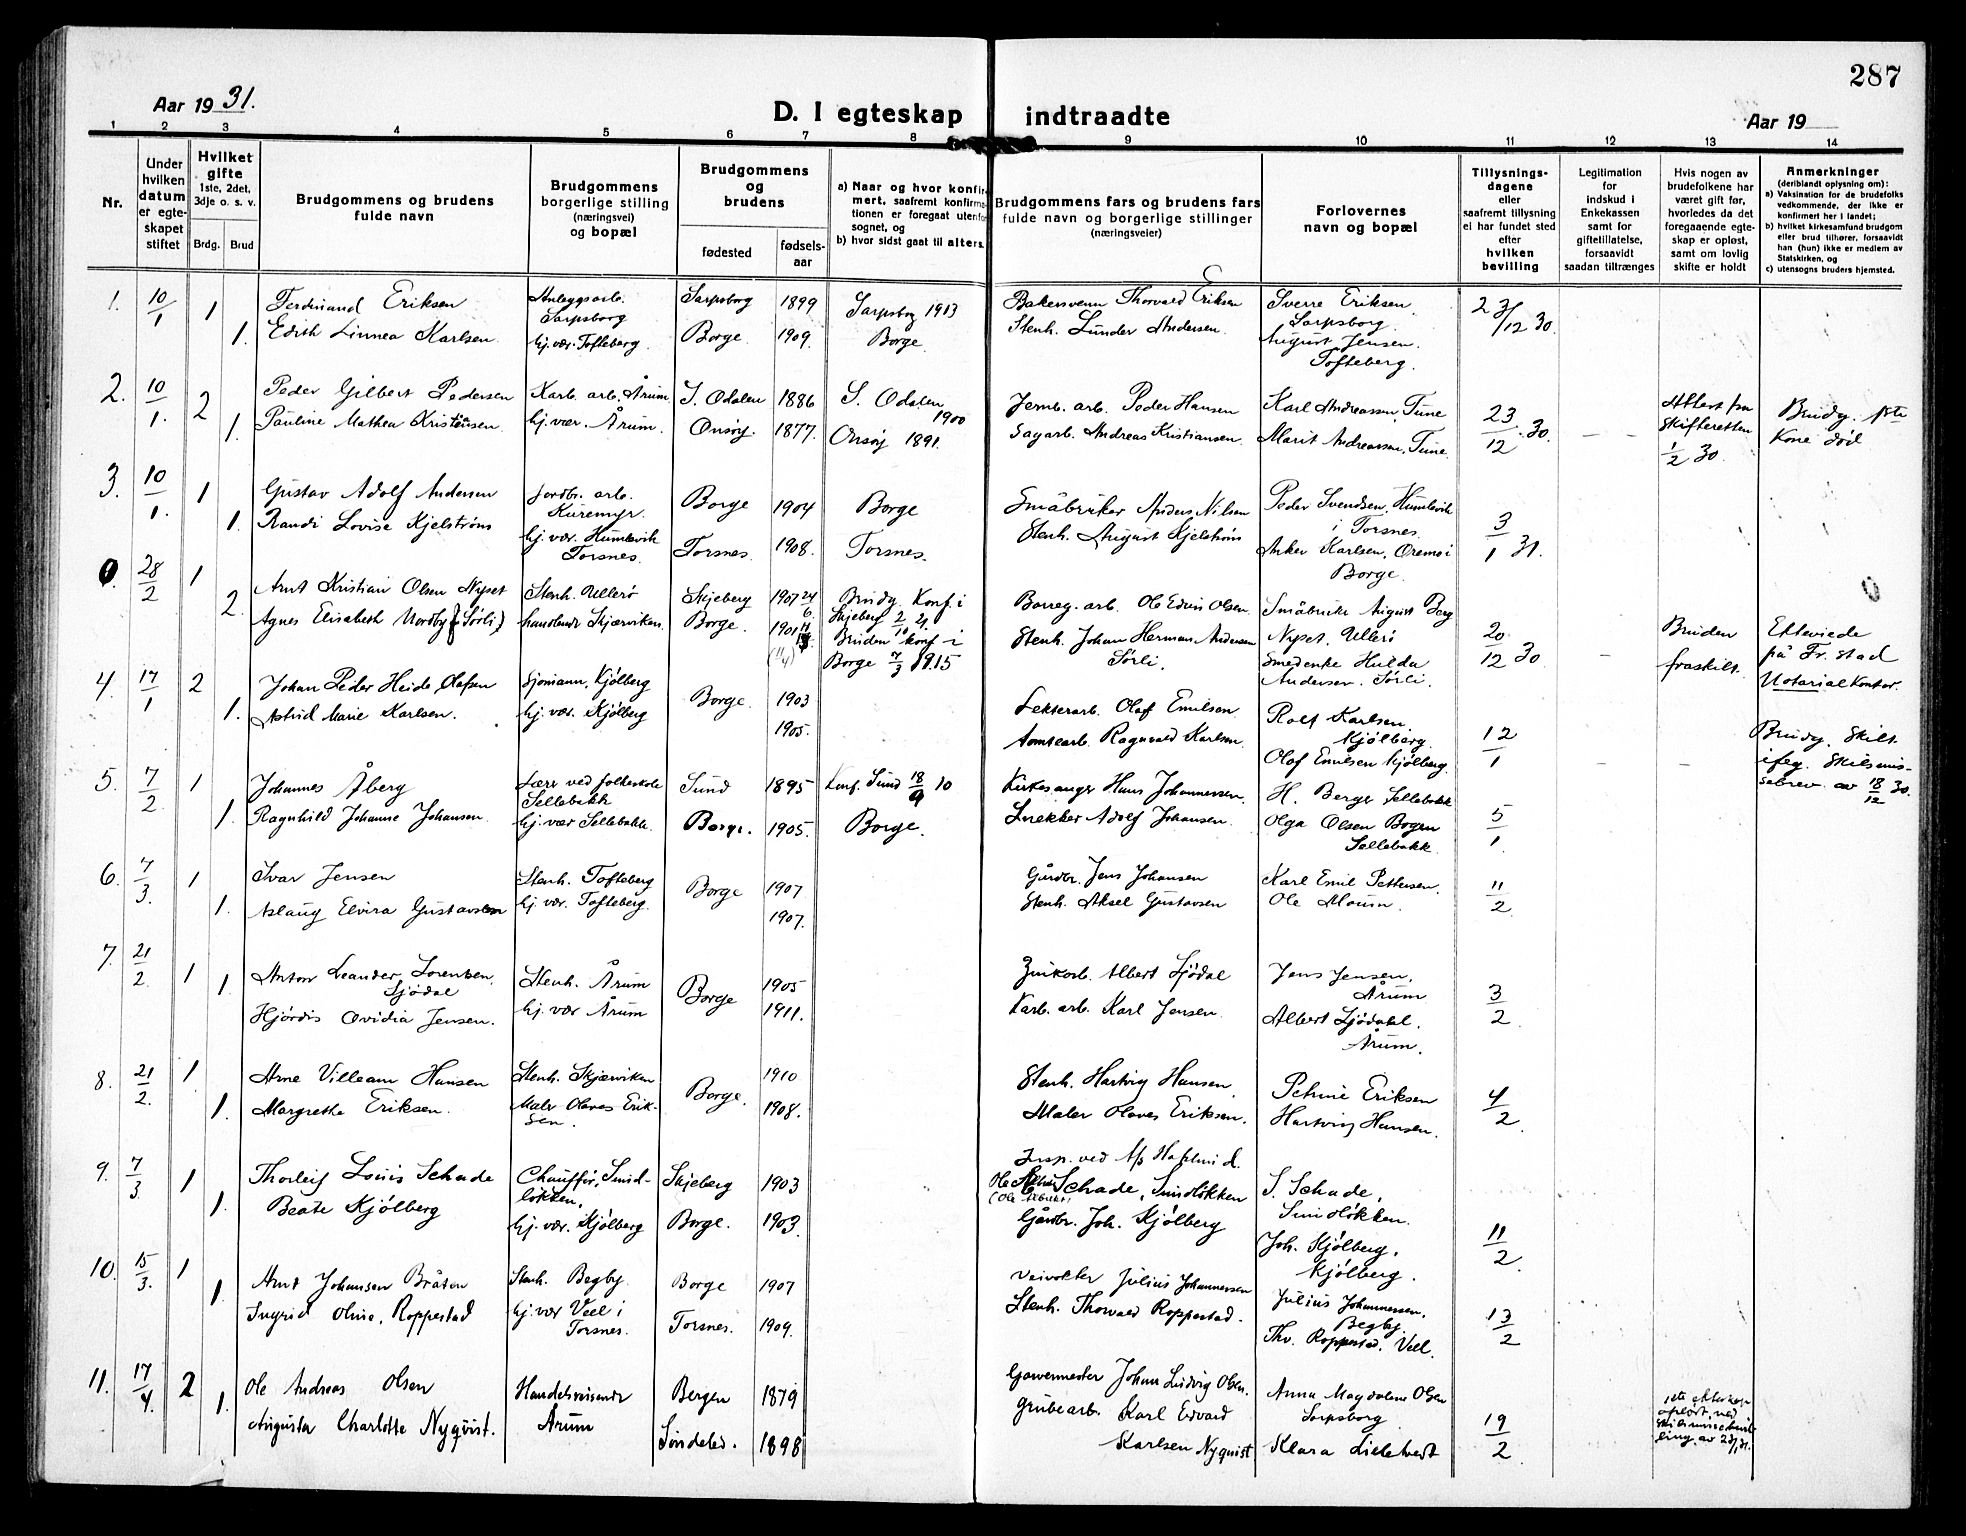 287
Aar 19 31.
D. I egteskap indtraadte
Aar 19
1 2 3 4 5 6 7 8 9 10 11 12 13 14
Nr.
Under hvilken datum er egteskapet stiftet
Hvilket gifte 1ste, 2det, 3dje o. s. v.
Brdg. Brud
Brudgommens og brudens fulde navn
Brudgommens borgerlige stilling (næringsvei) og bopæl
Brudgommens og brudens
fødested fødselsaar
a) Naar og hvor konfirmert, saafremt konfirmationen er foregaat utenfor sognet, og
b) hvor sidst gaat til alters.
Brudgommens fars og brudens fars fulde navn og borgerlige stillinger (næringsveier)
Forlovernes navn og bopæl
Tillysningsdagene eller saafremt tillysning ei har fundet sted efter hvilken bevilling
Legitimation for indskud i Enkekassen samt for giftetillatelse, forsaavidt saadan tiltrænges
Hvis nogen av brudefolkene har været gift før, hvorledes da det foregaaende egteskap er opløst, samt om lovlig skifte er holdt
Anmerkninger (deriblandt oplysning om):
a) Vaksination for de brudefolks vedkommende, der ikke er konfirmert her i landet;
b) hvilket kirkesamfund brudgom eller brud tilhører, forsaavidt han (hun) ikke er medlem av Statskirken, og
c) utensogns bruders hjemsted.
1. 10/1 1 Ferdinand Eriksen Anleggsarb. Sarpsborg Sarpsborg 1899 Sarpsborg 1913 Bakersvenn Thorvald Eriksen Sverre Eriksen Sarpsborg 23/12 30.
1. Edith Linnea Karlsen Hj. vær. Tofteberg. Borge 1909. Borge Stenh. Lunder Andersen. August Jensen. Tofteberg.
2. 10/1. 2 Peder Gilbert Pedersen Karb. arb. Årum S. Odalen 1886 S. Odalen 1900 Jernb. arb. Peder Hansen Karl Andreassen, Tune 23/12 30. Attest fra Skifteretten 1/2 30 Brudg. 1ste Kone død
1. Pauline Mathea Kristensen Hj. vær. Årum. Onsøy. 1877. Onsøy 1891. Sagarb. Andreas Kristiansen. Marit Andreassen, Tune
3. 10/1. 1 Gustav Adolf Andersen Jordbr. arb. Kuremyr. Borge 1904 Borge Småbruker Anders Nilsen Peder Svendsen, Humlevik i Torsnes. 3/1 31.
1. Randi Lovise Kjelstrøm Hj. vær. Humlevik Torsnes. Torsnes. 1908. Torsnes. Stenh. August Kjelstrøm Anker Karlsen, Oremo i Borge.
0. 28/2 1 Arnt Kristian Olsen Nyset Stenh. Ullerø Skjeberg 1907 24/6 Brudg. Konf. i Skjeberg 2/10 21. Borreg. arb. Ole Edvin Olsen Småbruke August Berg Nyset. Ullerø 20/12 30 Bruden fraskilt. Efteviede på Fr.stad Notarialkontor.
2. Agnes Elisabeth Nordby (Sørli) handlende Skjærviken Borge. 1901 (11/4) Bruden konf. i Borge 7/3 1915 Stenh. Johan Herman Andersen Sørli. Smedenke Hulda Andersen. Sørli.
4. 17/1 2 Johan Peder Heide Olafsen Sjømann, Kjølberg Borge 1903 Lekterarb. Olaf Emilsen Rolf Karlsen Kjølberg 12/1 Brudg. skilt iføg. Skilsmissebrev av 18/12 30.
1. Astrid Marie Karlsen. Hj. vær. Kjølberg 1905. Tomtearb. Ragnvald Karlsen Olaf Emilsen Kjølberg.
5. 7/2 1 Johannes Åberg Lærer ved folkeskole Sellebakk Sund 1895 Konf. Sund 18/9 10 Kirkesanger Hans Johannessen. H. Berger Sellebakk 5/1.
1. Ragnhild Johanne Johansen. Hj. vær Sellebakk. Borge. 1905. Borge. Snekker Adolf Johansen. Olga Olsen Bogen Sellebakk.
6. 7/3. 1 Ivar Jensen Stenh. Tofteberg Borge 1907 Gårdbr. Jens Johansen Karl Emil Pettersen. 11/2
1. Aslaug Elvira Gustavsen Hj. vær. Tofteberg. 1907. Stenh. Aksel Gustavsen Ole Moum.
7. 21/2. 1 Anton Leander Lorentzen Sjødal Stenh. Årum Borge 1905 Zinkarb. Albert Sjødal Jens Jensen, Årum 3/2.
1. Hjørdis Ovidia Jensen. Hj. vær Årum 1911. Karb. arb. Karl Jensen. Albert Sjødahl. Årum.
8. 21/2. 1 Arne Villeam Hansen Stenh. Skjærviken Borge. 1910 Stenh. Hartvig Hansen. Petrine Eriksen 4/2.
1. Margrethe Eriksen. Maler Olaves Eriksen. 1908. Maler Olaves Eriksen. Hartvig Hansen.
9. 7/3. 1 Thorleif Louis Schade Chauffør, Smidløkken. Skjeberg 1903 Insp. ved Schade, Smidløkken S. Schade, Smidløkken. 11/2.
1. Beate Kjølberg Hj. vær. Kjølberg Borge. 1903. Gårdbr. Joh. Kjølberg Joh. Kjølberg, Kjølberg.
10. 15/3. 1 Arnt Johansen Bråten Stenh. Begby. Borge 1907 Veivokter Julius Johannessen Julius Johannessen. Begby 13/2
1. Ingrid Oline, Roppestad Hj. vær Veel i Torsnes. Torsnes. 1909. Stenh. Thorvald Roppestad. Thv. Roppestad. Veel.
11. 17/4. 2 Ole Andreas Olsen Handelsreisende Årum Bergen 1879 Garvermester Johan Ludvig Olsen. Anna Magdalene Olsen Sarpsborg 19/2 1ste ekteskap opløst ved skilsmissebevilling av
1. Augusta Charlotte Nyqvist. Søndeled. 1898 Grubearb. Karl Edvard Karlsen Nyquist Klara Lillehvedt